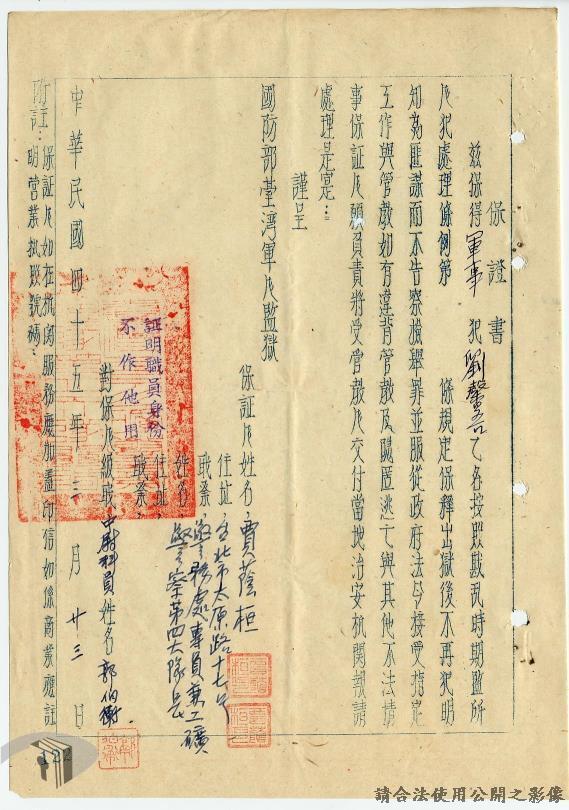 保證書
茲保得軍事犯劉馨吾乙名按照戡乱時期監所
人犯處理條例第　條規定保釋出獄後不再犯明
知為匪諜而不告察檢舉罪並服從政府法令接受指定
工作與管教如有違背管教及隱匿逃亡與其他不法情
事保証人願負責將受管教人交付當地治安机関報請
處理是寔：
謹呈
國防部臺灣軍人監獄
保証人姓名：賈蔭桓
住址：台北市太原路十七号
職業：警務處專員兼工礦
警察第四大隊長
姓名
住址
職業
對保人級職中尉科員姓名郭伯衡
證明職員身份
不作他用
中華民國四十五年三月廿三日
附註：保証人如在机関服務應加盖印信如係商業應註
明営業执照號碼：
122
請合法使用公開之影像